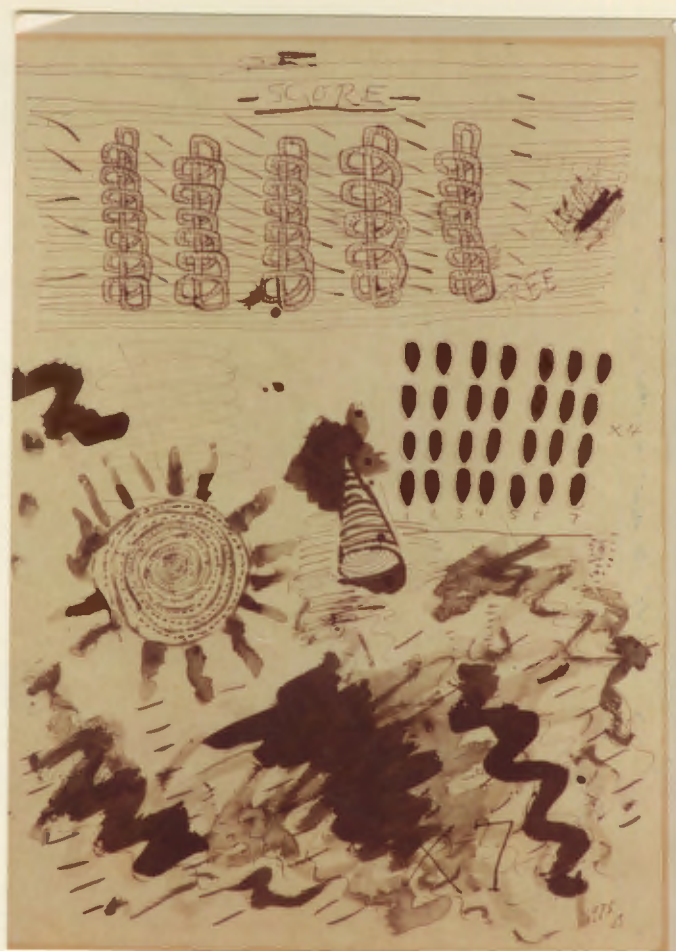 SCORE
FREE
X4
1 2 3 4 5 6 7
X7